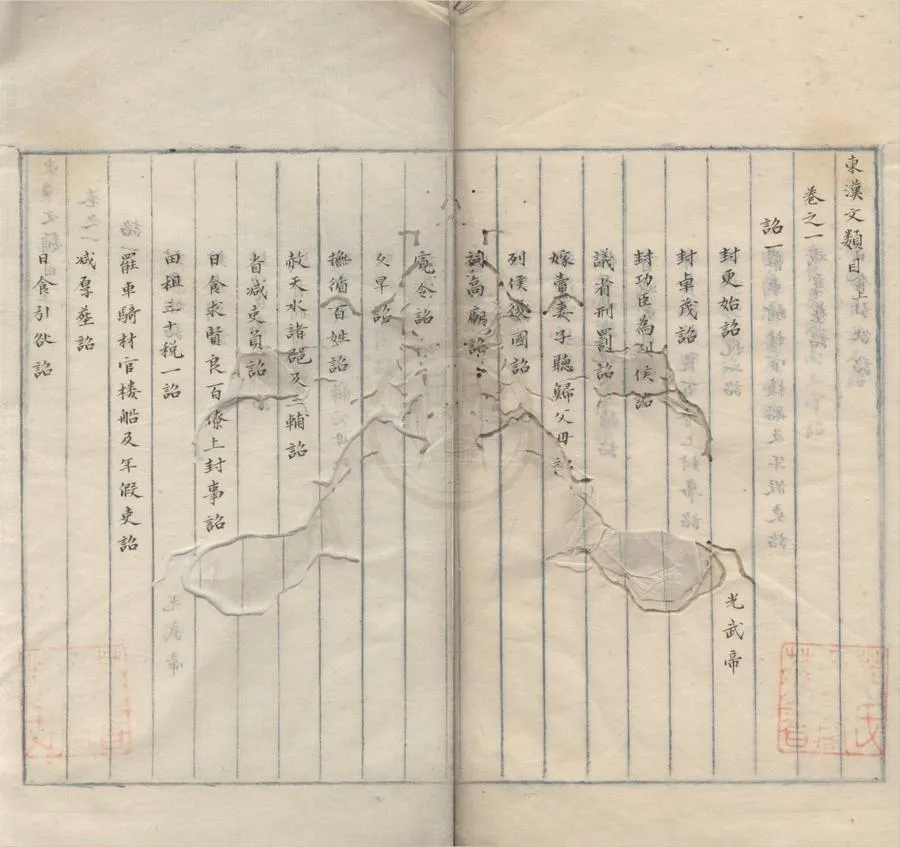 東漢文類目上
卷之一
詔一
封更始詔 光武帝
封卓茂詔
封功臣為列侯詔
議省刑罰詔
嫁賣妻子聽歸父母
列侯國詔
祠高廟詔
寬令詔
久旱詔
撫循百姓詔
赦天水諸郡及三輔詔
省减吏員詔
日食求賢良百僚上封事詔
田租三十税一詔
罷車騎材官楼船及軍假吏詔
减厚塟詔
日食引咎詔